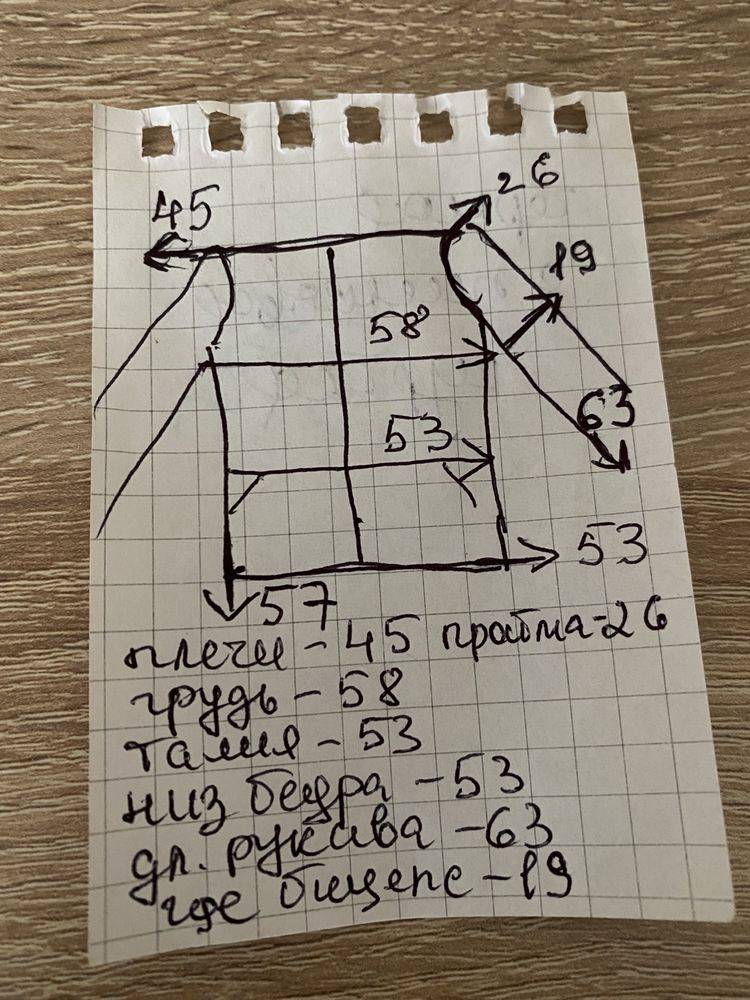 26
45
19
58
63
53
53
57
плечи - 45 пройма - 26
грудь - 58
талия - 53
низ бедра - 53
дл. рукава - 63
где бицепс - 19